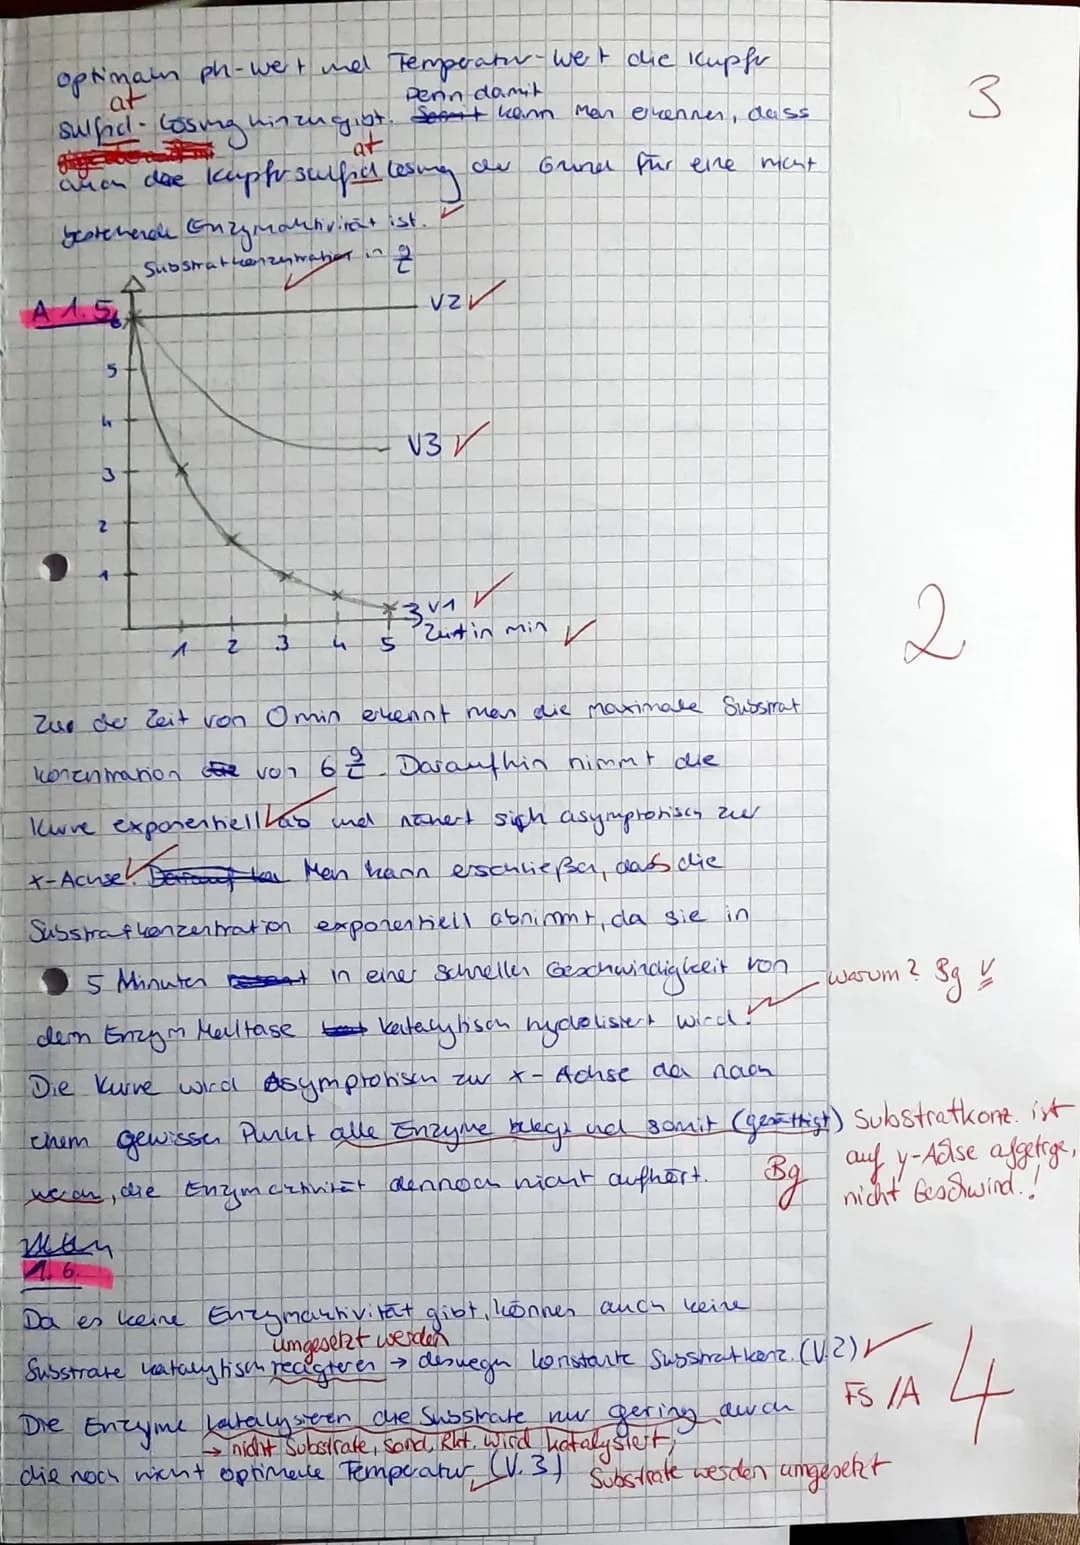 optimalen ph-wert und Temperatur-Wert die Kupfer
at
Denn damit
sulfid-Lösung hinzugibt. Somit kann man erkennen, dass
at
auch die Kupfersulfid lösung der Grund für eine nicht
bestehende Enzymaktivität ist. ✓
3
Substratkonzentration in g/L
✓
A 1.5
6
V2 ✓
5
4
V3 ✓
3
2
1
V1 ✓
1 2 3 4 5
Zeit in min ✓
2
Zur der Zeit von 0 min erkennt man die maximale Substrat
konzentration von 6 g/L. Daraufhin nimmt die
Kurve exponentiell ab und nähert sich asymptotisch zur
x-Achse. Man kann erschließen, dass die
Substratkonzentration exponentiell abnimmt, da sie in
5 Minuten in einer schnellen Geschwindigkeit von
warum? Bg
dem Enzym Maltase katalytisch hydrolisiert wird.
Die Kurve wird Asymptotisch zur x-Achse da nach
einem gewissen Punkt alle Enzyme belegt und somit (gesättigt)
Substratkonz. ist
auf y-Achse afgetrge,
nicht Geschwind.!
Bg
werden, die Enzymaktivität dennoch nicht aufhört.
1.6.
Da es keine Enzymaktivität gibt, können auch keine
umgesetzt werden
Substrate katalytisch reagieren → deswegen konstante Substratkonz. (V.2) ✓
FS /A
4
Die Enzyme katalysieren die Substrate nur gering durch
→ nicht Substrate, sond. Rkt. wird katalysiert,
die noch nicht optimale Temperatur. (V.3)
Substrate werden umgesetzt